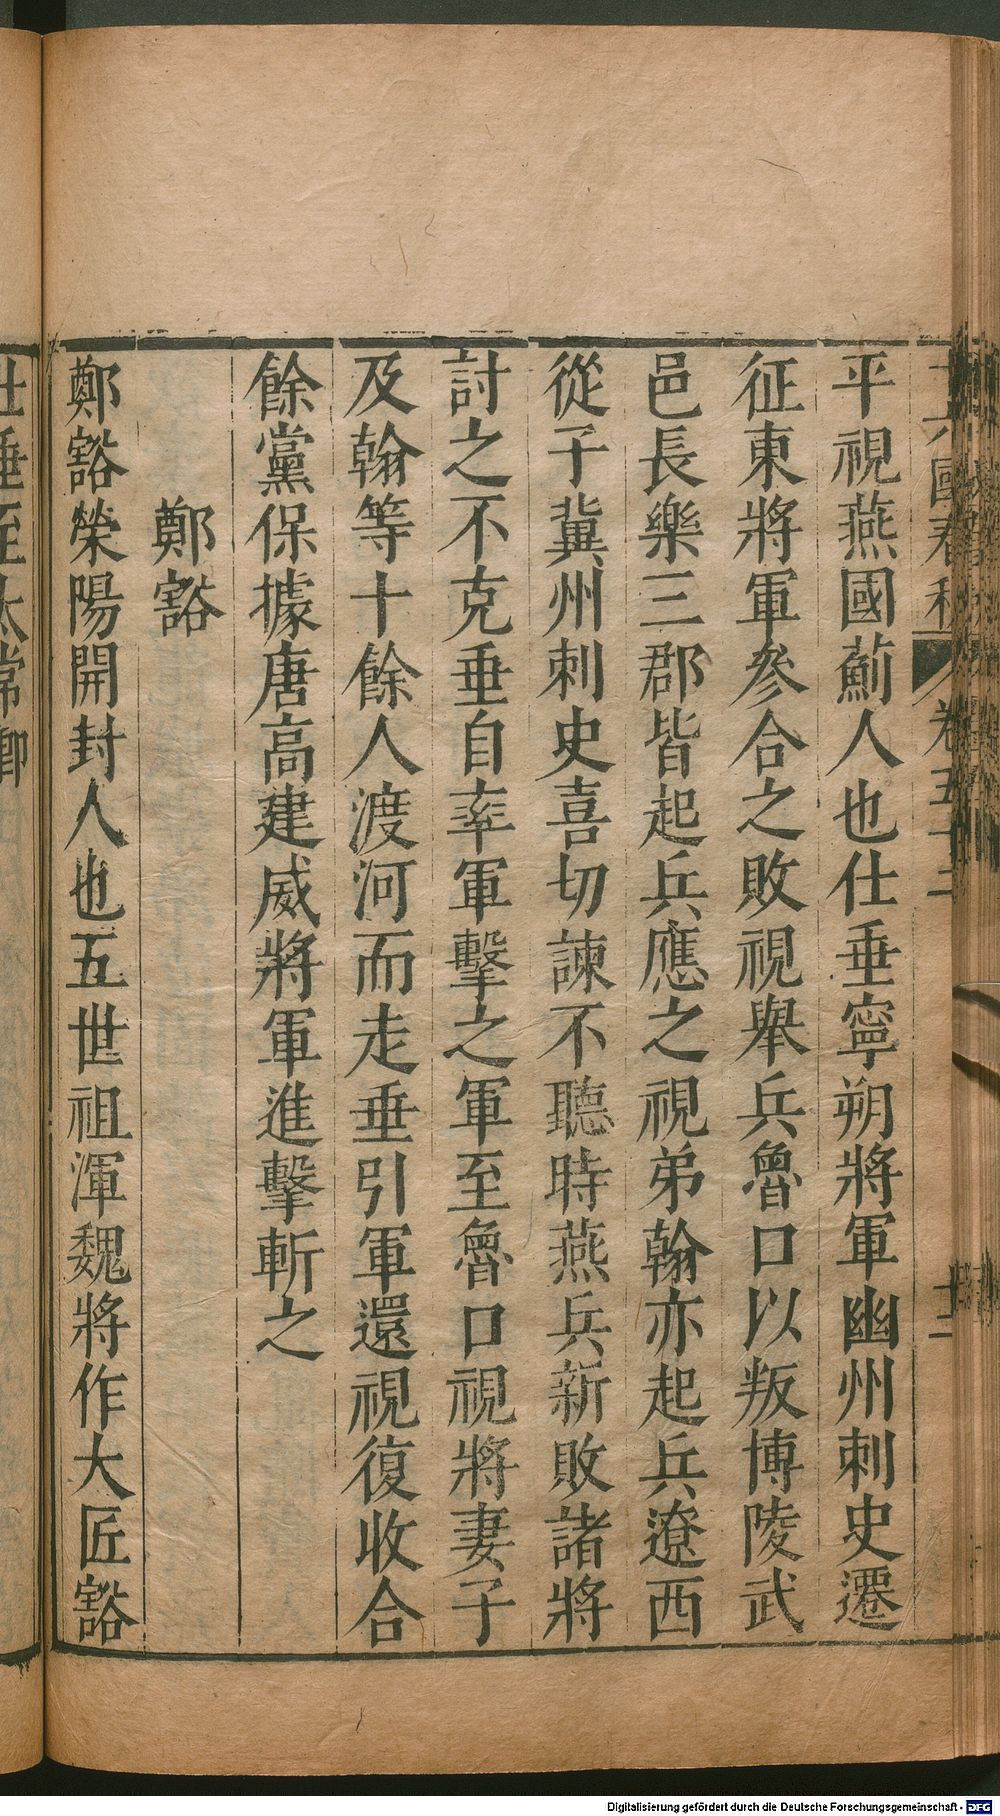 平視燕國薊人也仕垂寧朔將軍幽州刺史遷
征東將軍參合之敗視舉兵魯口以叛博陵武
邑長樂三郡皆起兵應之視弟翰亦起兵遼西
從子冀州刺史喜切諫不聽時燕兵新敗諸將
討之不克垂自率軍擊之軍至魯口視將妻子
及翰等十餘人渡河而走垂引軍還視復收合
餘黨保據唐高建威將軍進擊斬之
鄭豁
鄭豁滎陽開封人也五世祖渾魏將作大匠豁
仕垂至太常卿
十六國春秋 卷五十二 十二
Digitalisierung gefördert durch die Deutsche Forschungsgemeinschaft - DFG